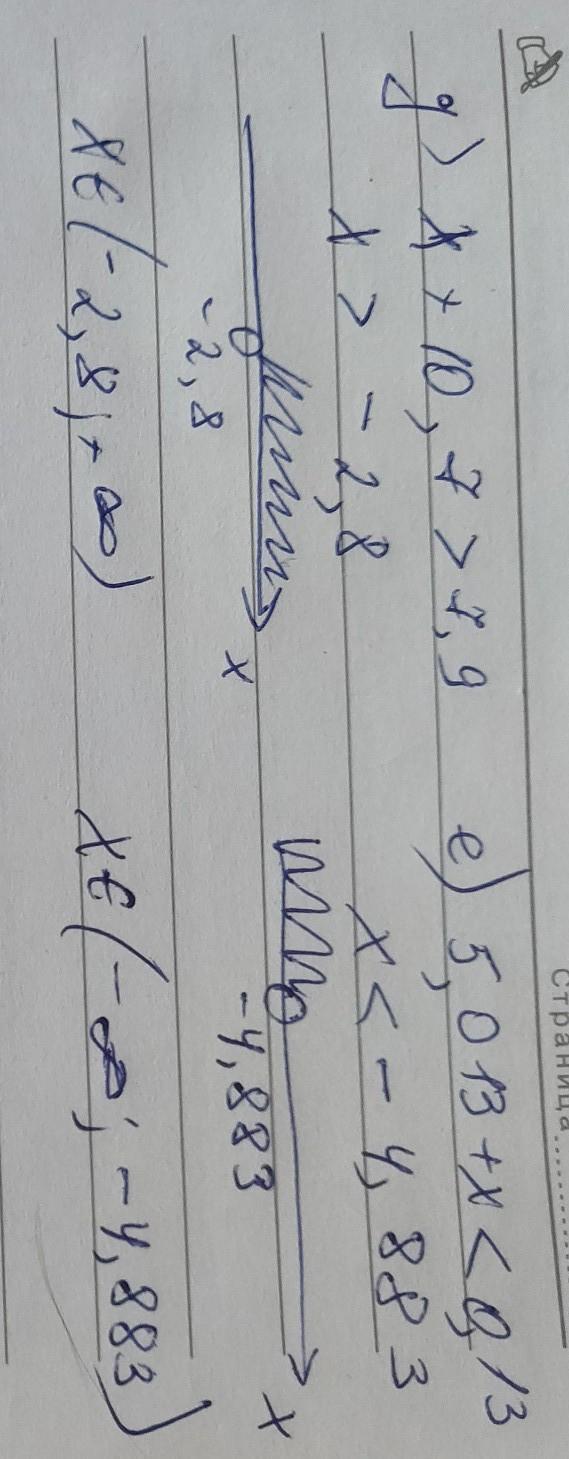 Страница
д) x + 10,7 > 7,9
x > -2,8
-2,8
x
x ∈ (-2,8; + ∞)
е) 5,013 + x < 0,13
x < -4,883
-4,883
x
x ∈ (-∞; -4,883)